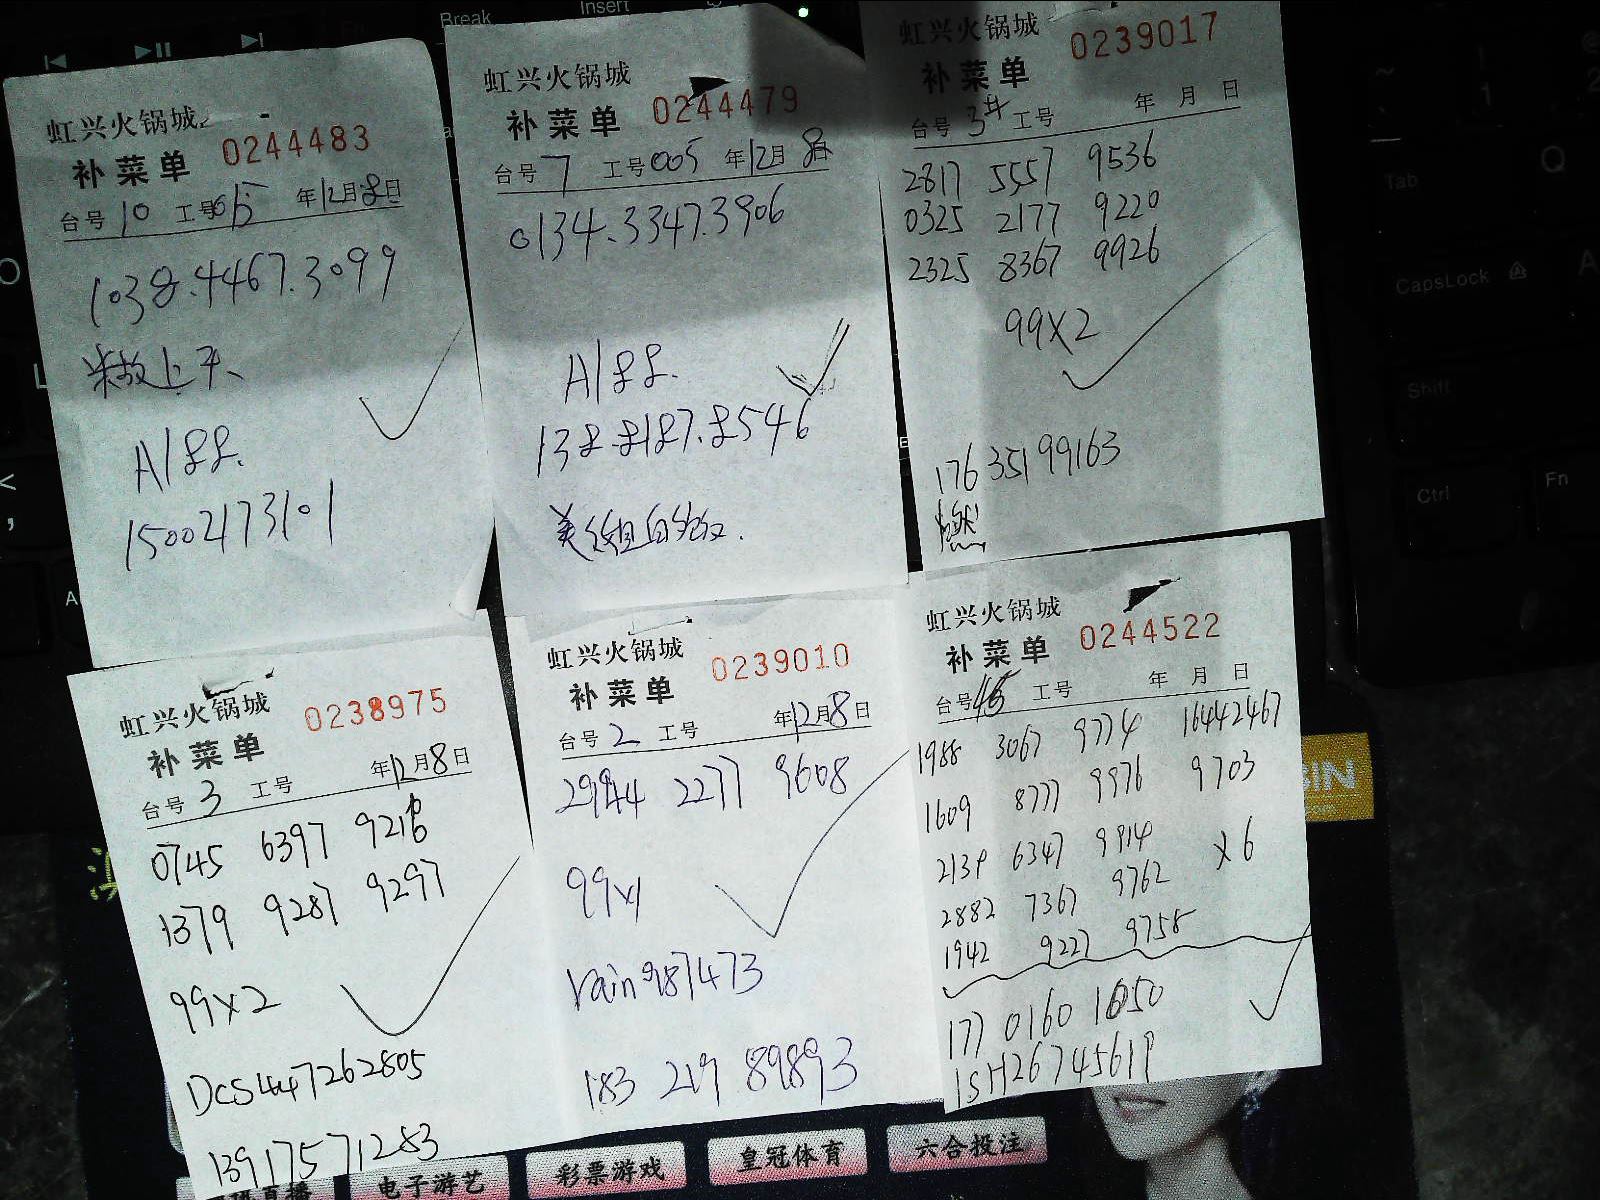 虹兴火锅城
补菜单 0244483
台号 10 工号 年12月8日
1038.4467.3099
A188.
15002173101
虹兴火锅城
补菜单 0244479
台号 7 工号005 年12月8日
0134.3347.3906
A188.
138.8187.8546
美
虹兴火锅城
补菜单 0239017
台号 3# 工号 年 月 日
2817 5557 9536
0325 2177 9220
2325 8367 9926
99X2
176 351 99163
虹兴火锅城
补菜单 0238975
台号 3 工号 年12月8日
0745 6397 9216
1379 9287 9297
99x2
Dcs447262805
13917571283
虹兴火锅城
补菜单 0239010
台号 2 工号 年12月8日
2277 9608
99x1
rain987473
183 219 89893
虹兴火锅城
补菜单 0244522
台号 工号 年 月 日
1988 3067 9774 16442467
1609 8777 9976 9703
2139 6347 9914 x6
2882 7367 9762
1942 9227 9758
177 0160 1050
1SH26745619
电子游艺
彩票游戏
皇冠体育
六合投注
Break
Insert
Tab
Q
CapsLock
A
Shift
Ctrl
Fn